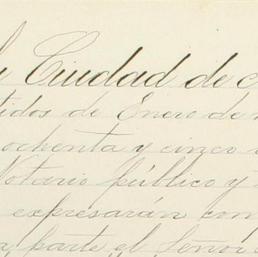 Ciudad de
tidos de Enero de
ochenta y cinco
Notario público y
expresarán con
parte el Señor